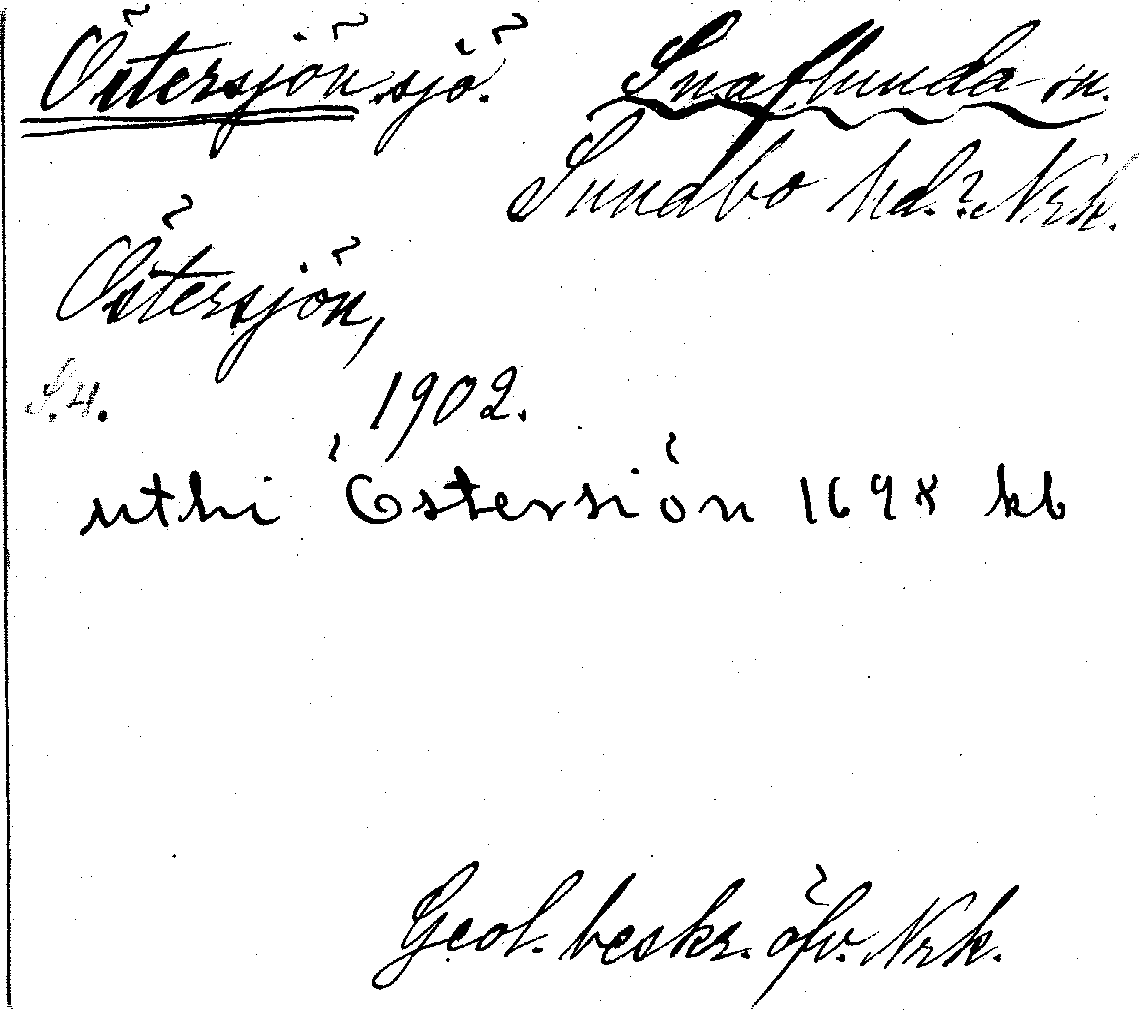 Östersjön, sjö. Snaflunda sn.
Sundbo hd. Nrk.
Östersjön,
S. 4. 1902.
uthi Östersiön 1698 kb
Geol. beskr. öfv. Nrk.